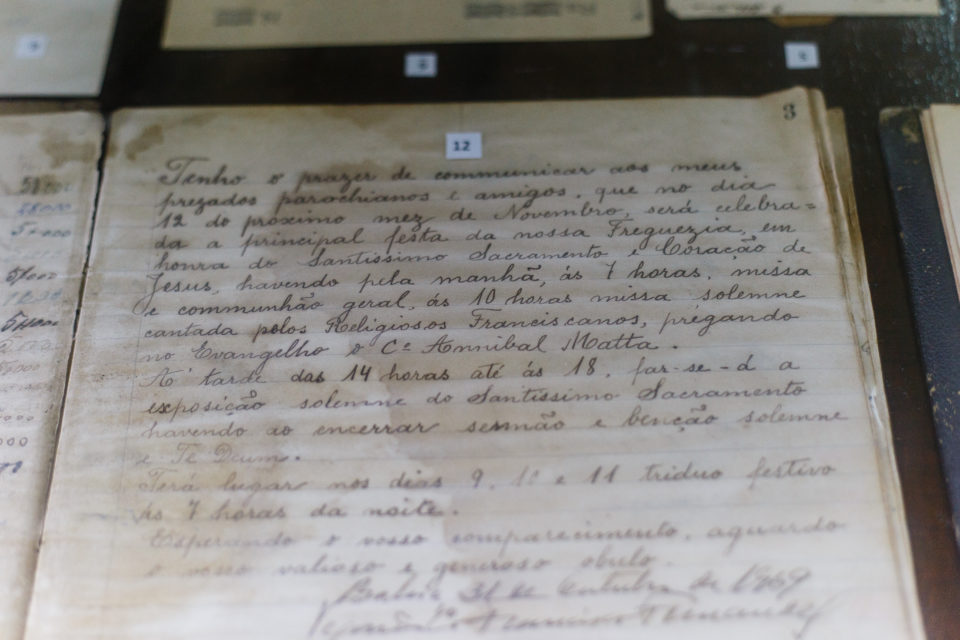 3
12
Tenho o prazer de communicar aos meus
prezados parochianos e amigos, que no dia
12 do proximo mez de Novembro, será celebra=
da a principal festa da nossa Freguezia, em
honra do Santissimo Sacramento e Coração de
Jesus, havendo pela manhã, ás 7 horas, missa
e communhão geral, ás 10 horas missa solemne
cantada pelos Religiosos Franciscanos, pregando
no Evangelho o Cº Annibal Matta.
Á tarde das 14 horas até ás 18, far-se-á a
exposição solemne do Santissimo Sacramento
havendo ao encerrar sermão e benção solemne
e Te Deum.
Terá lugar nos dias 9, 10 e 11 triduo festivo
ás 7 horas da noite.
Esperando o vosso comparecimento, aguardo
o vosso valioso e generoso obulo.
Bahia 31 de Outubro de